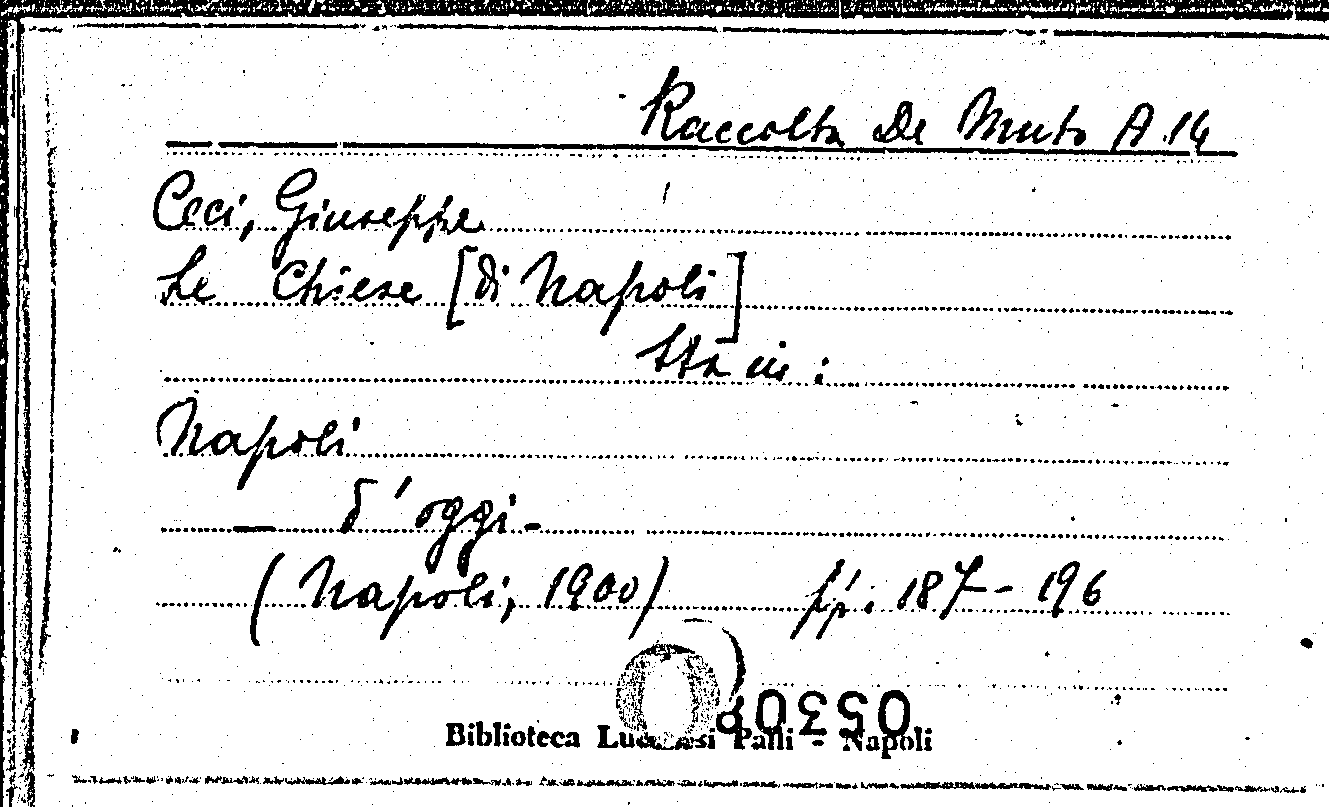 Raccolta De Muto A 14
Ceci, Giuseppe
Le Chiese [di Napoli]
Sta in :
Napoli
— d'oggi -
(Napoli, 1900) pp. 187-196
Biblioteca Lucchesi Palli - Napoli